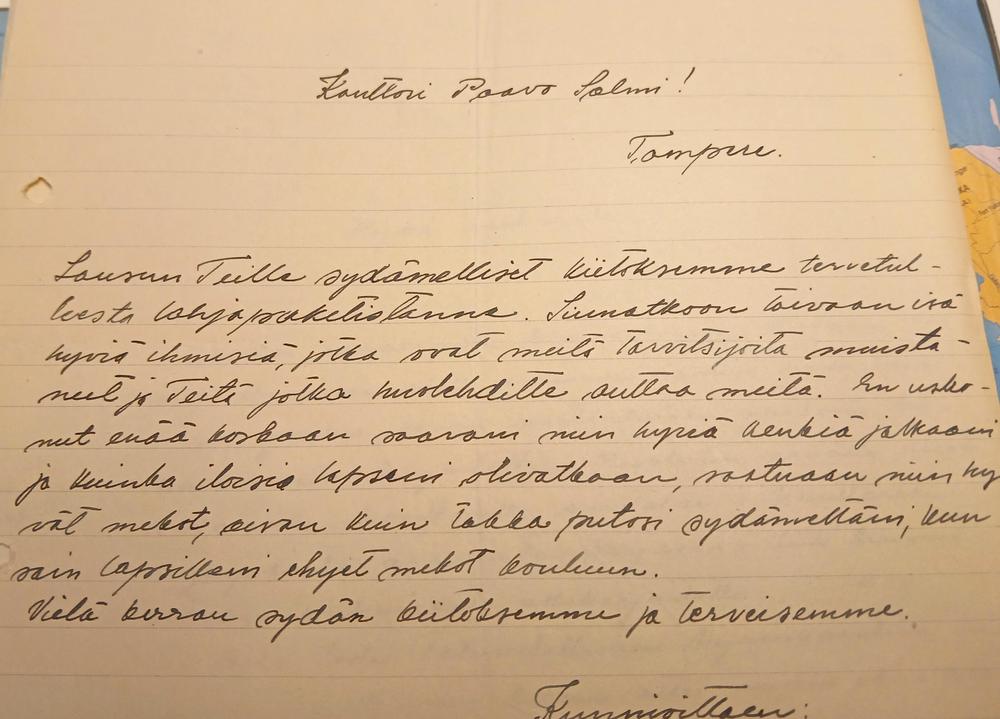 Kanttori Paavo Salmi!
Tampere.
Lausun Teille sydämelliset kiitoksemme tervetul-
leesta lahjapaketistanne. Siunatkoon taivaan isä
hyviä ihmisiä, jotka ovat meitä tarvitsijoita muista-
neet ja Teitä jotka huolehditte auttaa meitä. En usko-
nut enää koskaan saavani niin hyviä kenkiä jalkaani
ja kuinka iloisia lapseni olivatkaan, saatuaan niin hy
vät mekot, aivan kuin takka putosi sydämeltäni, kun
sain lapsilleni ehyet mekot kouluun.
Vielä kerran sydän kiitoksemme ja terveisemme.
Kunnioittaen: